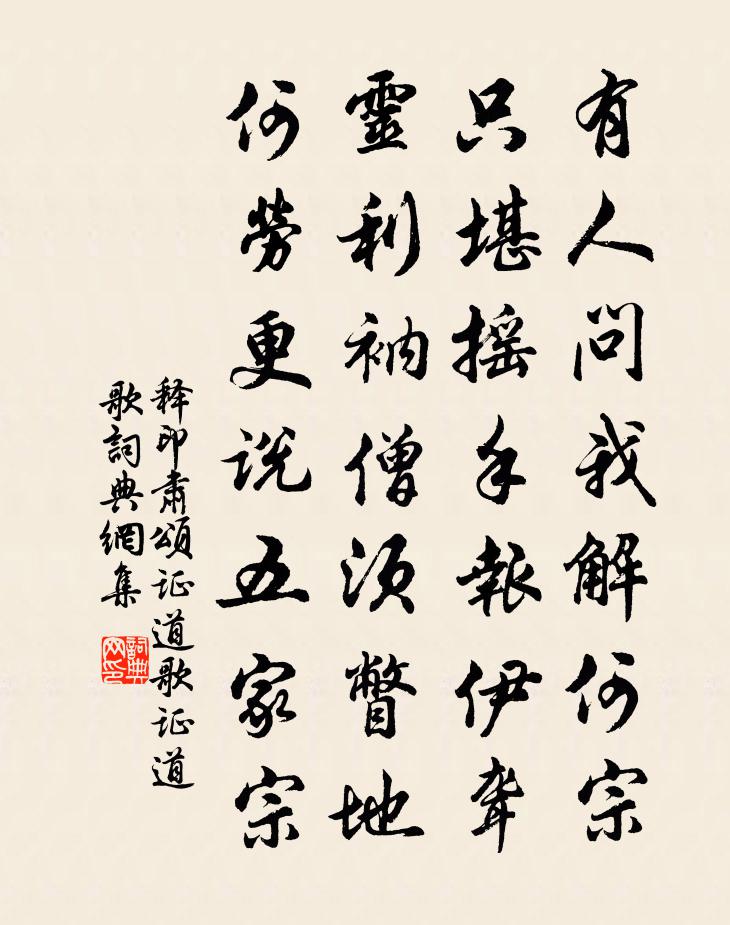 有人问我解何宗
只堪摇手報伊聾
靈利衲僧須瞥地
何勞更说五家宗
释印肃頌证道歌证道
歌詞典網集
詞典网印